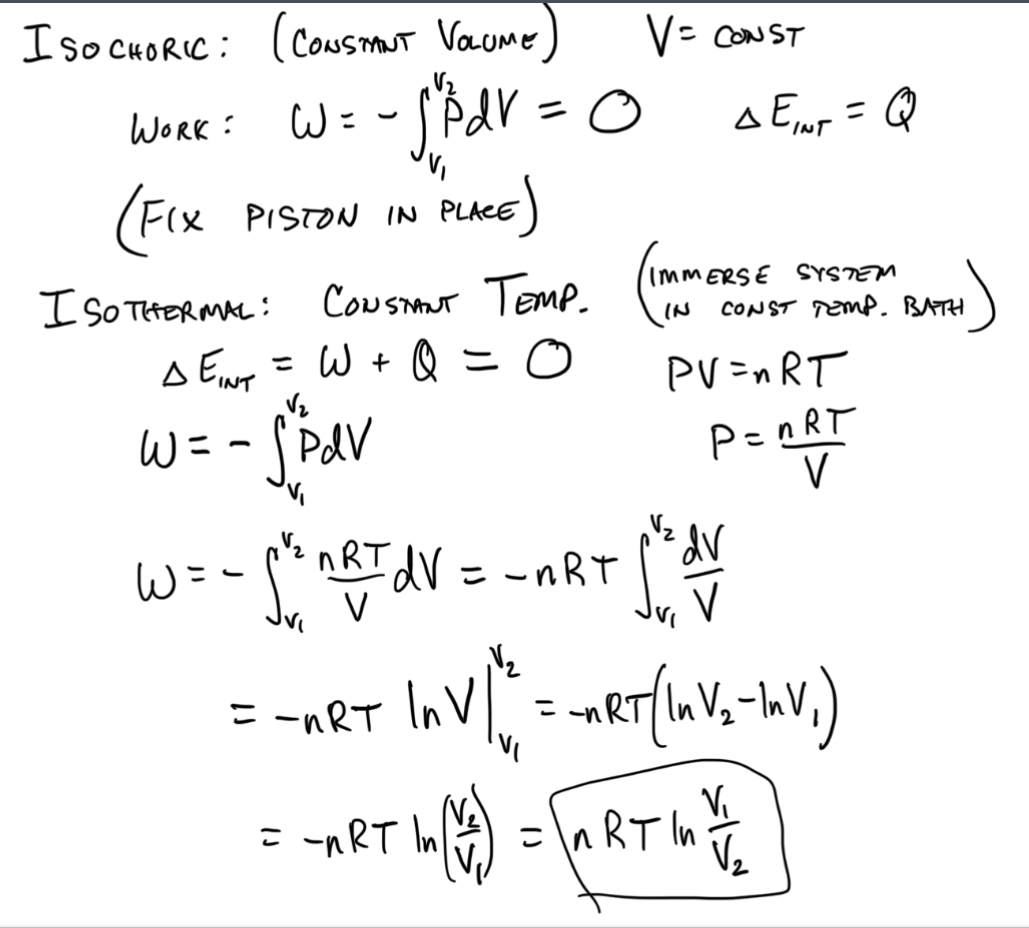 ISOCHORIC: (CONSTANT VOLUME) V = CONST
WORK: W = - ∫_{V₁}^{V₂} P dV = 0 ΔE_INT = Q
(FIX PISTON IN PLACE)
ISOTHERMAL: CONSTANT TEMP. (IMMERSE SYSTEM
IN CONST TEMP. BATH)
ΔE_INT = W + Q = 0 PV = nRT
W = - ∫_{V₁}^{V₂} P dV P = nRT/V
W = - ∫_{V₁}^{V₂} nRT/V dV = -nRT ∫_{V₁}^{V₂} dV/V
= -nRT ln V |_{V₁}^{V₂} = -nRT(ln V₂ - ln V₁)
= -nRT ln(V₂/V₁) = nRT ln V₁/V₂